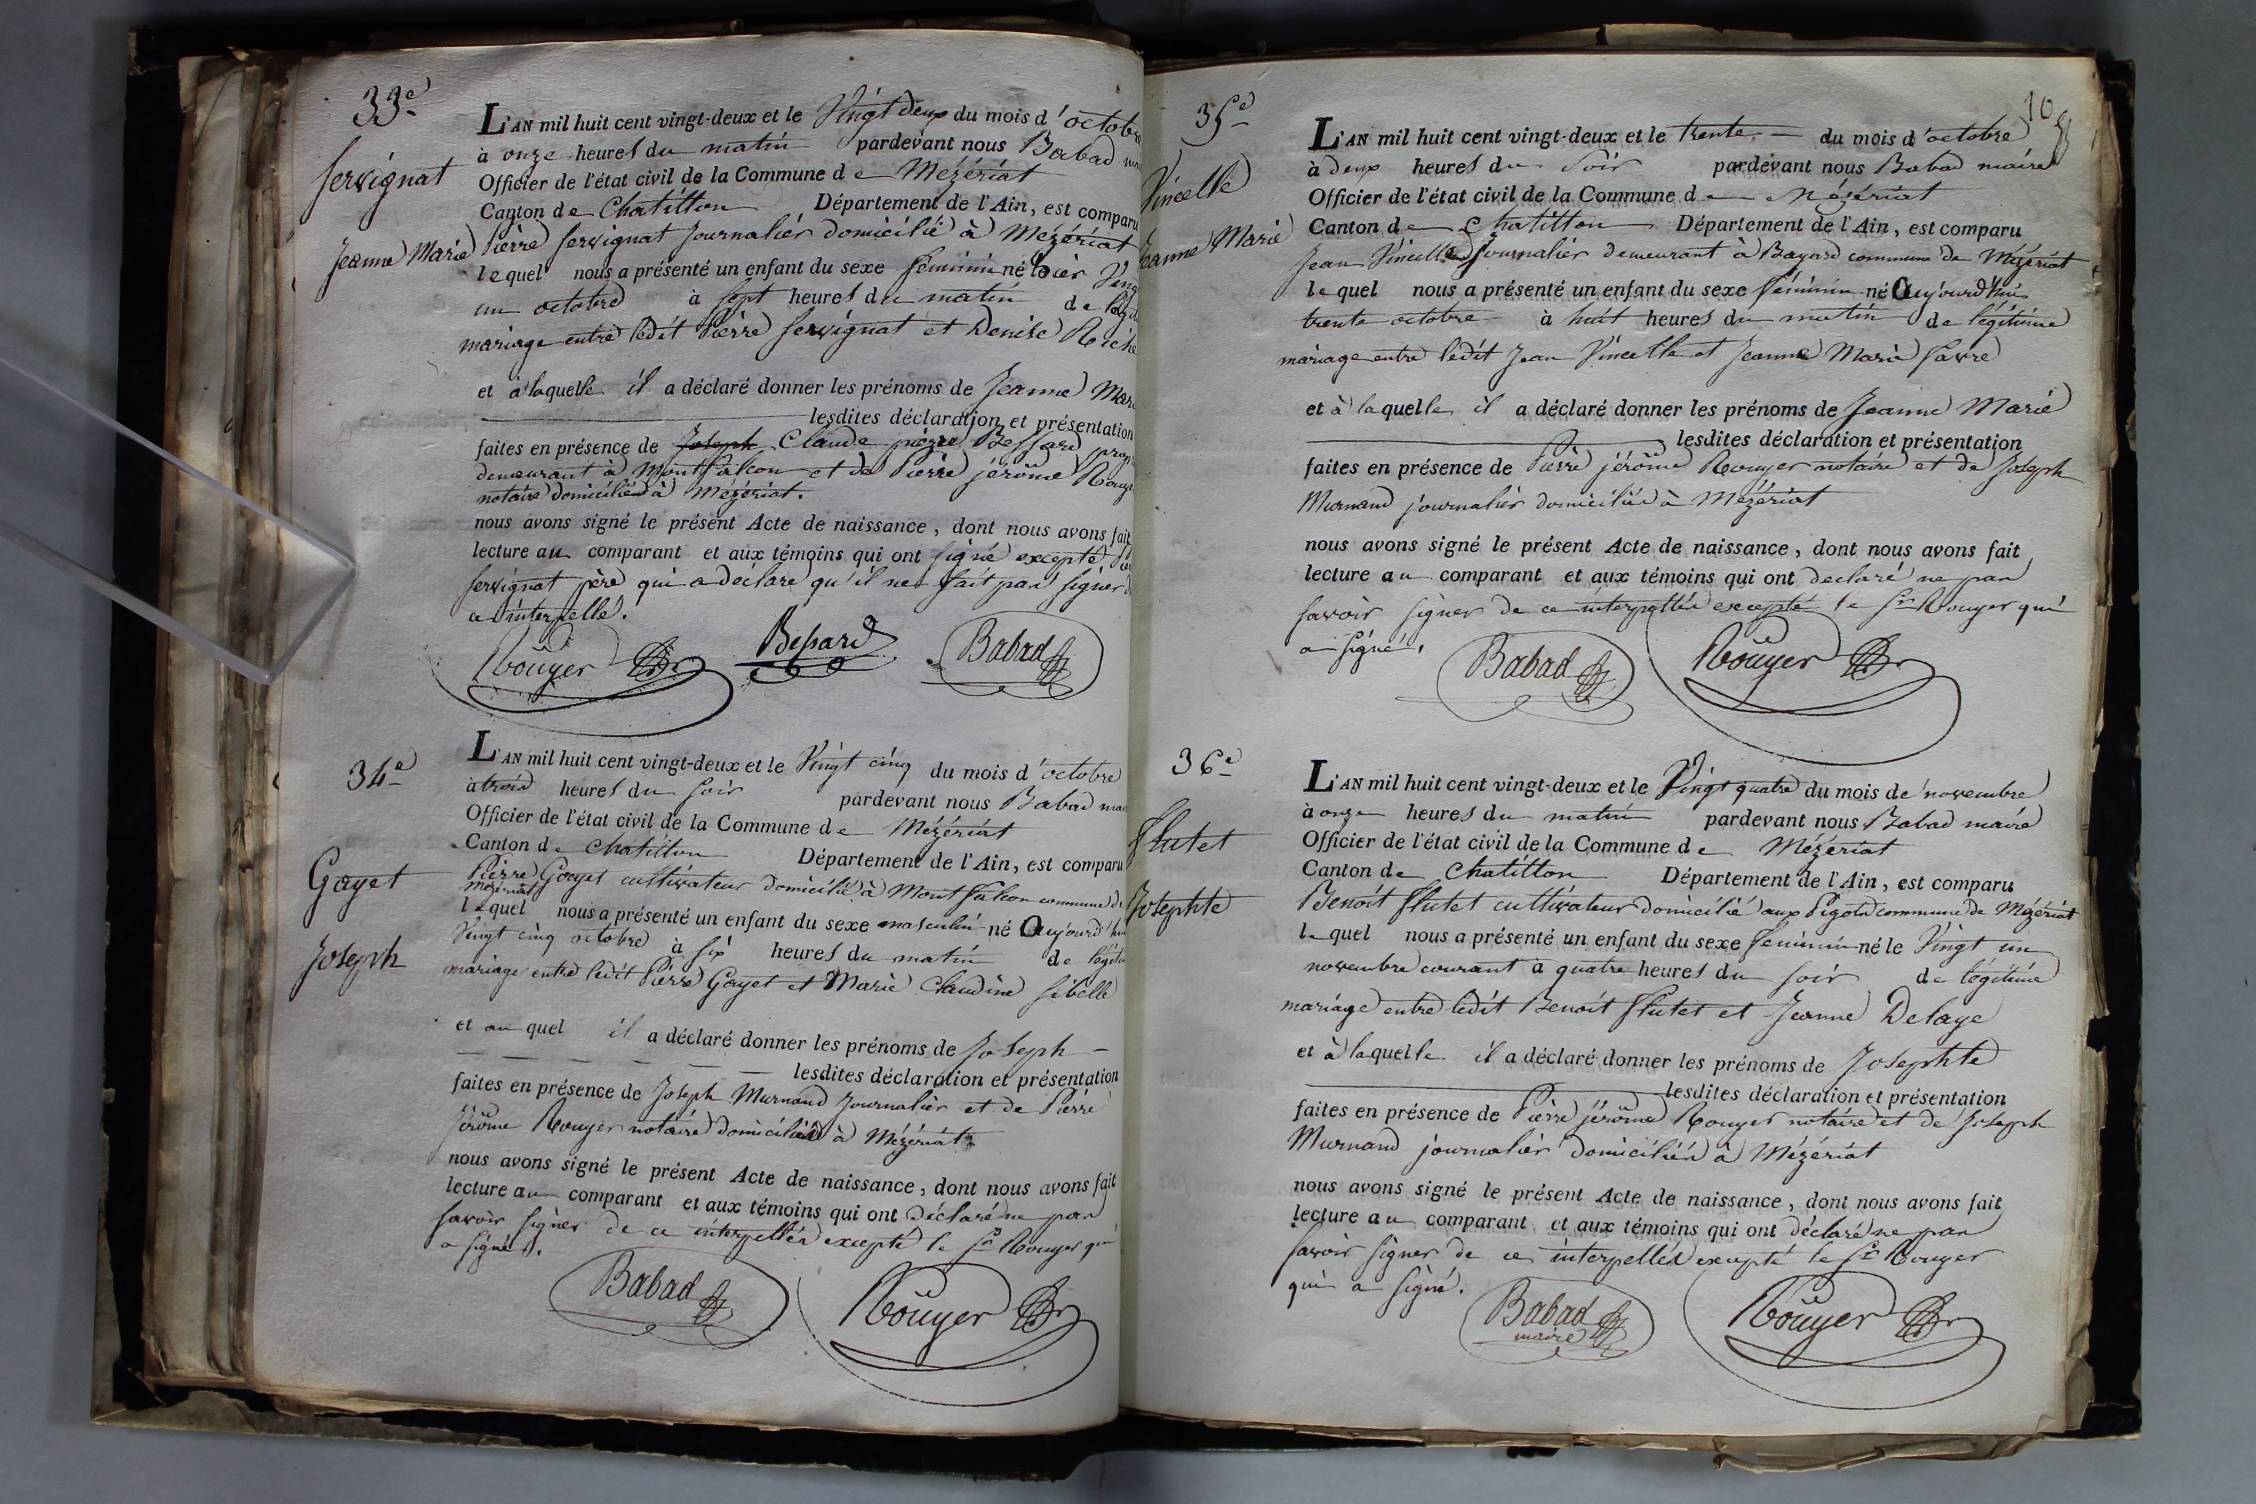 33e
Servignat
Jeanne Marie
L'AN mil huit cent vingt-deux et le Vingt deux du mois d'octobre
à onze heures du matin pardevant nous Babad
Officier de l'état civil de la Commune de Mézériat
Canton de Chatillon Département de l'Ain, est comparu
Pierre Servignat Journalier domicilié à Mézériat
lequel nous a présenté un enfant du sexe féminin né hier
un octobre à sept heures du matin de
mariage entre ledit Pierre Servignat et Denise
et à laquelle il a déclaré donner les prénoms de Jeanne
lesdites déclaration et présentation
faites en présence de Joseph Claude pierre Bessard
demeurant à Montfalcon et de Pierre jérôme
notaire domiciliés à Mézériat.
nous avons signé le présent Acte de naissance, dont nous avons fait
lecture au comparant et aux témoins qui ont signé excepté
Servignat père qui a déclaré qu'il ne sait pas signer
ce interpellé.
Roüyer Bessard Babad
34e
Goyet
Joseph
L'AN mil huit cent vingt-deux et le Vingt cinq du mois d'octobre
à trois heures du soir pardevant nous Babad
Officier de l'état civil de la Commune de Mézériat
Canton de Chatillon Département de l'Ain, est comparu
Pierre Goyet cultivateur domicilié à Montfalcon commune de
mézériat
lequel nous a présenté un enfant du sexe masculin né Aujourd'hui
Vingt cinq octobre à six heures du matin de
mariage entre ledit Pierre Goyet et Marie Claudine Sibelle
et au quel il a déclaré donner les prénoms de Joseph
lesdites déclaration et présentation
faites en présence de Joseph Murnand Journalier et de Pierre
Jérôme Rouyer notaire domiciliés à Mézériat
nous avons signé le présent Acte de naissance, dont nous avons fait
lecture au comparant et aux témoins qui ont déclaré ne pas
savoir signer de ce interpellés excepté le Sr Rouyer qui
a signé.
Babad Roüyer
35e
Vincelle
Jeanne Marie
L'AN mil huit cent vingt-deux et le trente du mois d'octobre
à deux heures du soir pardevant nous Babad maire
Officier de l'état civil de la Commune de Mézériat
Canton de Chatillon Département de l'Ain, est comparu
Jean Vincelle Journalier demeurant à Bayard commune de Mézériat
lequel nous a présenté un enfant du sexe féminin né Aujourd'hui
trente octobre à huit heures du matin de légitime
mariage entre ledit Jean Vincelle et Jeanne Marie Favre
et à laquelle il a déclaré donner les prénoms de Jeanne Marie
lesdites déclaration et présentation
faites en présence de Pierre jérôme Rouyer notaire et de Joseph
Murnand journalier domiciliés à Mézériat
nous avons signé le présent Acte de naissance, dont nous avons fait
lecture au comparant et aux témoins qui ont declaré ne pas
savoir signer de ce interpellés excepté le Sr Rouyer qui
a signé.
Babad Roüyer
36e
Flutet
Josephte
L'AN mil huit cent vingt-deux et le Vingt quatre du mois de novembre
à onze heures du matin pardevant nous Babad maire
Officier de l'état civil de la Commune de Mézériat
Canton de Chatillon Département de l'Ain, est comparu
Benoit Flutet cultivateur domicilié aux Pigots commune de Mézériat
lequel nous a présenté un enfant du sexe feminin né le Vingt un
novembre courant à quatre heures du soir de légitime
mariage entre ledit Benoit Flutet et Jeanne Delaye
et à laquelle il a déclaré donner les prénoms de Josephte
lesdites déclaration et présentation
faites en présence de Pierre jérôme Rouyer notaire et de Joseph
Murnand journalier domiciliés à Mézériat
nous avons signé le présent Acte de naissance, dont nous avons fait
lecture au comparant et aux témoins qui ont déclaré ne pas
savoir signer de ce interpellés excepté le Sr Rouyer
qui a signé.
Babad Roüyer
maire